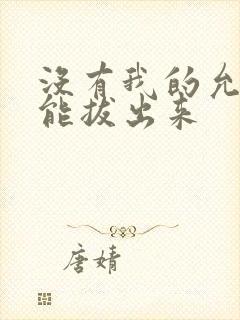 没有我的允
能拔出来
唐婧